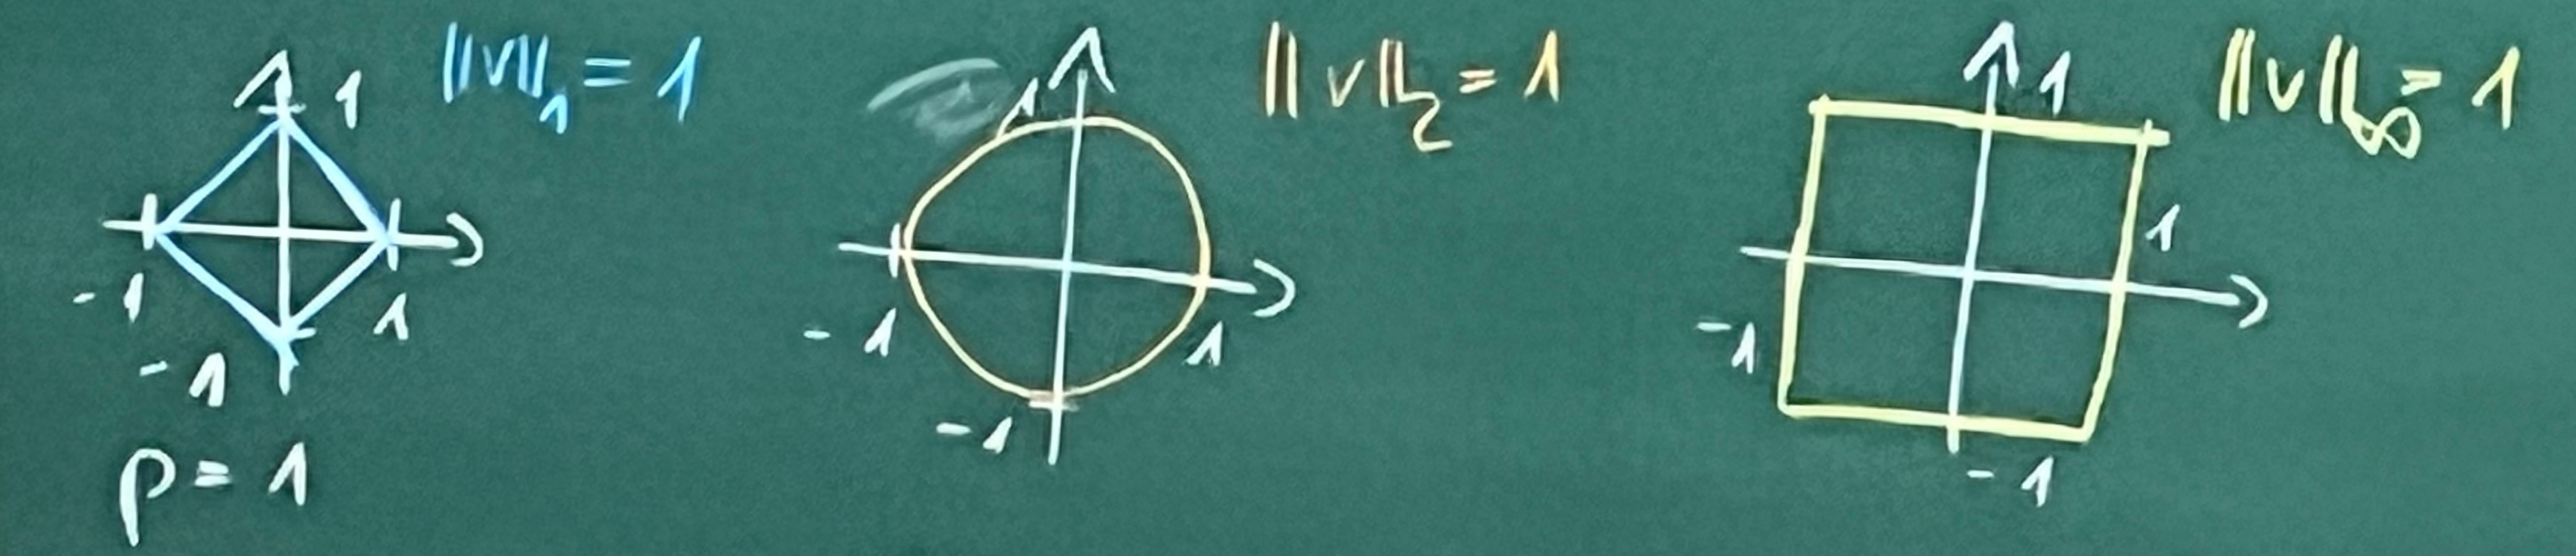 1 ||v||₁ = 1
-1 1
-1
p = 1
1 ||v||₂ = 1
-1 1
-1
1 ||v||∞ = 1
1
-1
-1